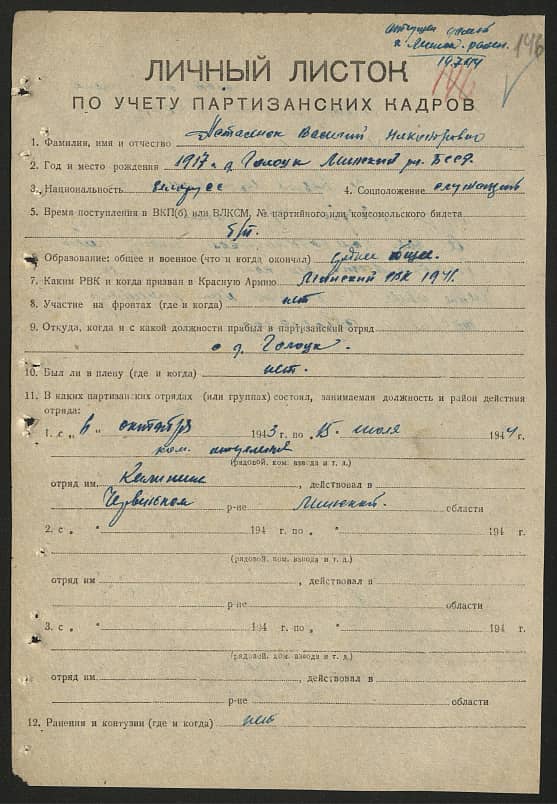 отпущен
в Минск. район.
19.7.44
146
146
ЛИЧНЫЙ ЛИСТОК
ПО УЧЕТУ ПАРТИЗАНСКИХ КАДРОВ
1. Фамилия, имя и отчество Василий Никифорович
2. Год и место рождения 1917 г. д. Голоцк Минский р. БССР.
3. Национальность белорусс 4. Соцположение служащий
5. Время поступления в ВКП(б) или ВЛКСМ, № партийного или комсомольского билета
б/п.
6. Образование: общее и военное (что и когда окончил) средне общее.
7. Каким РВК и когда призван в Красную Армию Минский РВК 1941.
8. Участие на фронтах (где и когда) нет
9. Откуда, когда и с какой должности прибыл в партизанский отряд
с д. Голоцк.
10. Был ли в плену (где и когда) нет.
11. В каких партизанских отрядах (или группах) состоял, занимаемая должность и район действия
отряда:
1. с „ 8 " октября 1943 г. по „ 15. " июля 1944 г.
ком. отделения
(рядовой, ком. взвода и т. д.)
отряд им. Калинина, действовал в
Червенском р-не Минской. области
2. с „ " 194 г. по „ " 194 г.
(рядовой, ком. взвода и т. д.)
отряд им , действовал в
р-не области
3. с „ " 194 г. по „ " 194 г.
(рядовой, ком. взвода и т. д.)
отряд им. , действовал в
р-не области
12. Ранения и контузии (где и когда) нет